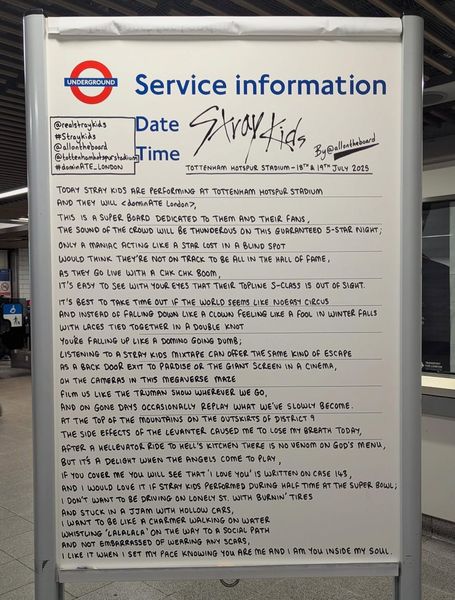 UNDERGROUND
Service information
@realstraykids
#Straykids
@allontheboard
@tottenhamhotspurstadium
#dominATE_LONDON
Date
Time
Stray Kids
By @allontheboard
TOTTENHAM HOTSPUR STADIUM - 18TH & 19TH JULY 2025
TODAY STRAY KIDS ARE PERFORMING AT TOTTENHAM HOTSPUR STADIUM
AND THEY WILL <dominATE London>,
THIS IS A SUPER BOARD DEDICATED TO THEM AND THEIR FANS,
THE SOUND OF THE CROWD WILL BE THUNDEROUS ON THIS GUARANTEED 5-STAR NIGHT;
ONLY A MANIAC ACTING LIKE A STAR LOST IN A BLIND SPOT
WOULD THINK THEY'RE NOT ON TRACK TO BE ALL IN THE HALL OF FAME,
AS THEY GO LIVE WITH A CHK CHK BOOM,
IT'S EASY TO SEE WITH YOUR EYES THAT THEIR TOPLINE S-CLASS IS OUT OF SIGHT.
IT'S BEST TO TAKE TIME OUT IF THE WORLD SEEMS LIKE NOEASY CIRCUS
AND INSTEAD OF FALLING DOWN LIKE A CLOWN FEELING LIKE A FOOL IN WINTER FALLS
WITH LACES TIED TOGETHER IN A DOUBLE KNOT
YOU'RE FALLING UP LIKE A DOMINO GOING DUMB;
LISTENING TO A STRAY KIDS MIXTAPE CAN OFFER THE SAME KIND OF ESCAPE
AS A BACK DOOR EXIT TO PARDISE OR THE GIANT SCREEN IN A CINEMA,
OH THE CAMERAS IN THIS MEGAVERSE MAZE
FILM US LIKE THE TRUMAN SHOW WHEREVER WE GO,
AND ON GONE DAYS OCCASIONALLY REPLAY WHAT WE'VE SLOWLY BECOME.
AT THE TOP OF THE MOUNTAINS ON THE OUTSKIRTS OF DISTRICT 9
THE SIDE EFFECTS OF THE LEVANTER CAUSED ME TO LOSE MY BREATH TODAY,
AFTER A HELLEVATOR RIDE TO HELL'S KITCHEN THERE IS NO VENOM ON GOD'S MENU,
BUT IT'S A DELIGHT WHEN THE ANGELS COME TO PLAY;
IF YOU COVER ME YOU WILL SEE THAT 'I LOVE YOU' IS WRITTEN ON CASE 143,
AND I WOULD LOVE IT IF STRAY KIDS PERFORMED DURING HALF TIME AT THE SUPER BOWL;
I DON'T WANT TO BE DRIVING ON LONELY ST. WITH BURNIN' TIRES
AND STUCK IN A JJAM WITH HOLLOW CARS,
I WANT TO BE LIKE A CHARMER WALKING ON WATER
WHISTLING 'LALALALA' ON THE WAY TO A SOCIAL PATH
AND NOT EMBARRASSED OF WEARING ANY SCARS,
I LIKE IT WHEN I SET MY PACE KNOWING YOU ARE ME AND I AM YOU INSIDE MY SOUL.